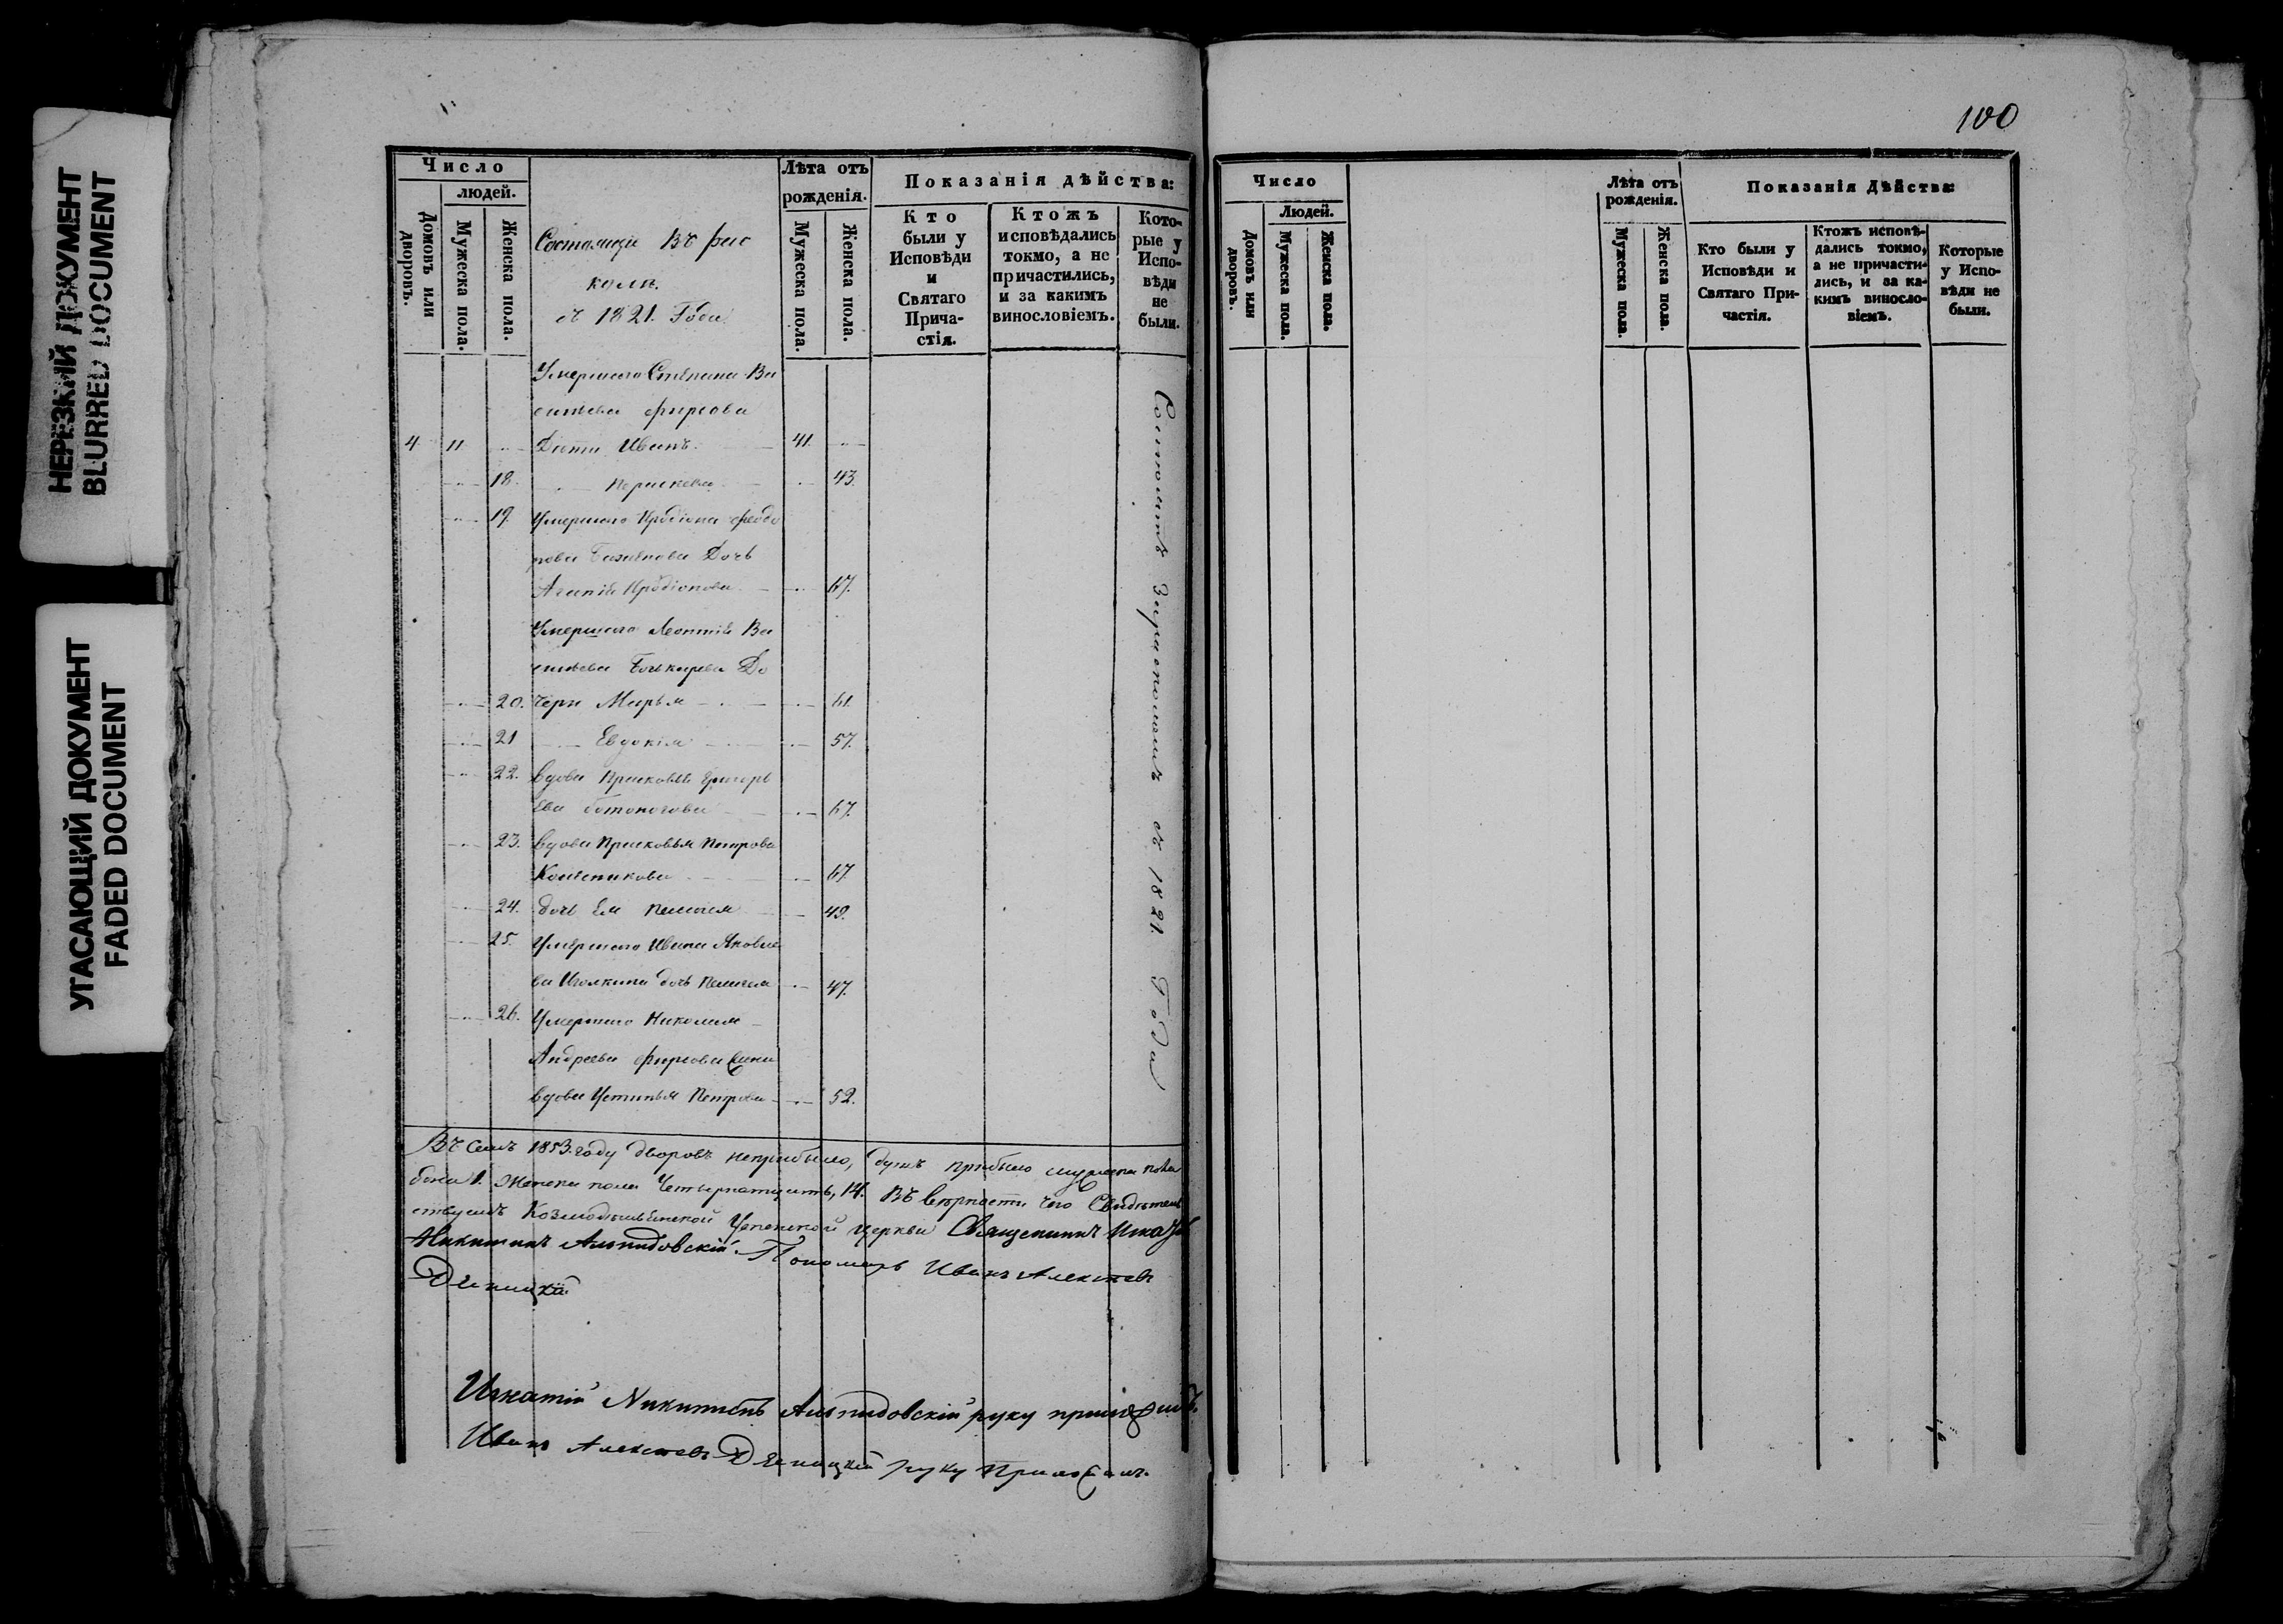 НЕРЕЗКИЙ ДОКУМЕНТ
BLURRED DOCUMENT
УГАСАЮЩИЙ ДОКУМЕНТ
FADED DOCUMENT
Число
людей.
Домовъ или дворовъ.
Мужеска пола.
Женска пола.
Состоящіе Въ рас
колѣ
съ 1821. Года
Лѣта отъ
рожденія.
Мужеска пола.
Женска пола.
Показанія дѣйства:
Кто
были у
Исповѣди
и
Святаго
Прича-
стія.
Ктожъ
исповѣдались
токмо, а не
причастились,
и за какимъ
винословіемъ.
Кото-
рые у
Испо-
вѣди
не
были.
Умершаго Степана Ва
сильева Фирсова
4 11 Дѣти Иванъ 41.
18. 43.
19. Умершаго Иродіона Феодо
рова Дочь
Иродіонова 67.
Умершаго Леонтія Ва
сильева До
20. чери Марья 61.
21 Евдокія 57.
22. Вдова Прасковья Григорь
ева 67.
23. Вдова Прасковья Петрова
67.
24. дочь Ея Пелагея 49.
25. Умершаго Ивана Яковле
ва дочь Пелагея 47.
26. Умершаго Николая
Андреева Фирсова Жена
вдова Устинья Петрова 52.
съ 1821. Года
Въ семъ 1853. году дворовъ неприбыло, душъ прибыло мужеска пола
1. Женска пола Четырнатцать, 14. Въ верности чего Свидѣтель
ствуемъ Козмодемьянской Успенской церкви Священникъ Игнатій
Никитинъ Альпидовскій. Пономарь Иванъ Алексѣевъ
Игнатій Никитинъ Альпидовскій руку приложилъ.
Иванъ Алексѣевъ руку Приложилъ.
100
Число
Людей.
Домовъ или дворовъ.
Мужеска пола.
Женска пола.
Лѣта отъ
рожденія.
Мужеска пола.
Женска пола.
Показанія Дѣйства:
Кто были у
Исповѣди и
Святаго При-
частія.
Ктожъ исповѣ-
дались токмо,
а не причасти-
лись, и за ка-
кимъ виносло-
віемъ.
Которые
у Испо-
вѣди не
были.